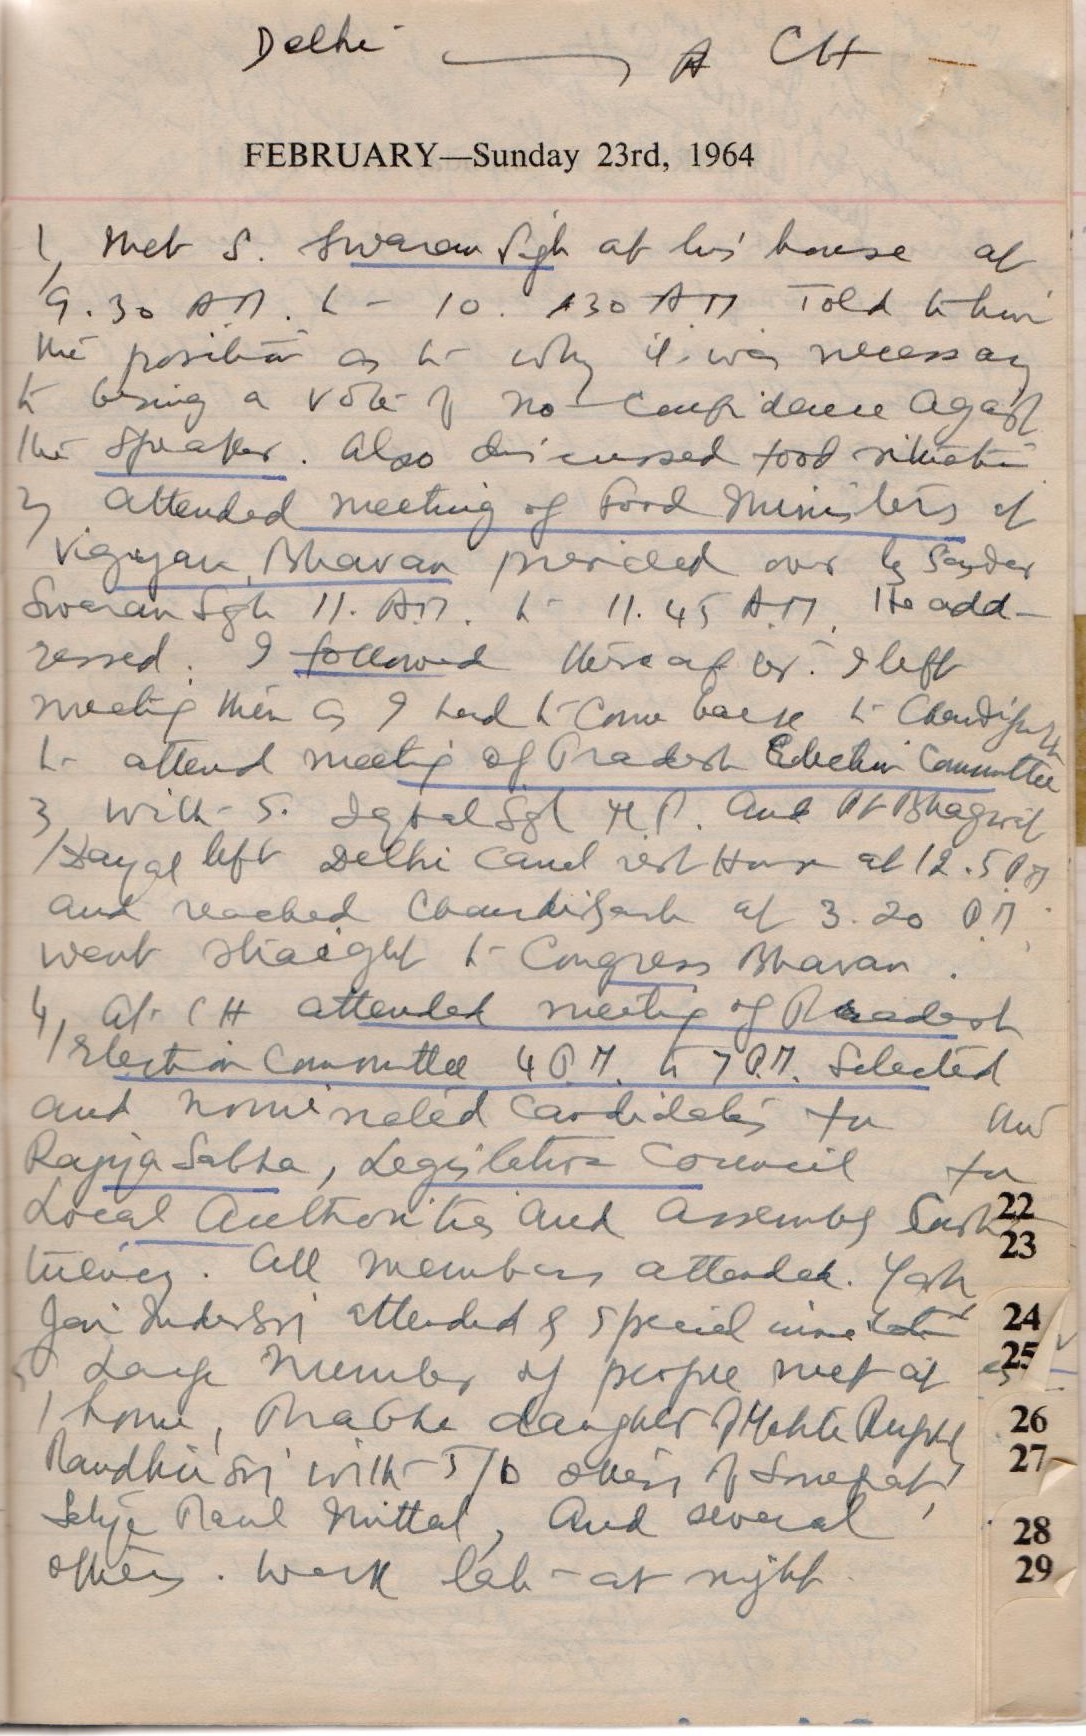 Delhi → CH
FEBRUARY—Sunday 23rd, 1964
1, Met S. Swaran Sigh at his house at
9.30 AM. to 10.30 AM Told to him
the position as to why it was necessary
to bring a vote of no-confidence Agast
the Speaker. Also discussed food situation
2, attended meeting of Food Ministers at
Vigyan Bhavan presided over by Sardar
Swaran Sgh 11. AM. to 11.45 A.M. He add-
ressed. I followed thereafter. I left
meeting then as I had to come back to Chandigarh
to attend meeting of Pradesh Election Committee
3, With S. Iqbal Sgh M.P. and Pt Bhagwat
Dayal left Delhi Canal rest House at 12.5 PM
and reached Chandigarh at 3.20 P.M.
went straight to Congress Bhavan.
4, At CH attended meeting of Pradesh
Election Committee 4 P.M. to 7 P.M. Selected
and nominated candidates for
Rajya Sabha, Legislative Council for
Local Authorities and Assembly Consti
22
23
tuency. All members attended. Yash
24
Jai Inder Sgj attended by special invitation
25
5 Large Number of people met at
home, Prabha daughter of Mehta
26
27
with others of Sonepat,
Paul Mittal, And several
28
others. Work late at night.
29